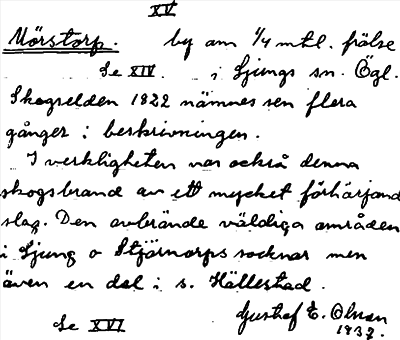 XV
Mörstorp. by am 1/4 mtl. frälse
Se XIV. i Ljungs sn. Ögl.
Skogselden 1822 nämnes sen flera
gånger i beskrivningen.
I verkligheten var också denna
skogsbrand av ett mycket förhärjand
slag. Den avbrände väldiga områden
i Ljung o Stjärnorps socknar men
även en del i s. Hällestad.
Se XVI Gustaf E. Olsson
1937.